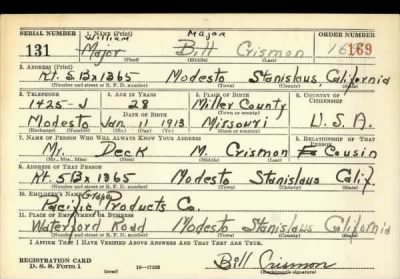 SERIAL NUMBER 1. NAME (Print) ORDER NUMBER
William Major
131 Major Bill Crismon 169
(First) (Middle) (Last)
2. ADDRESS (Print)
Rt. 5 Bx 1365 Modesto Stanislaus California
(Number and street or R. F. D. number) (Town) (County) (State)
3. TELEPHONE 4. AGE IN YEARS 5. PLACE OF BIRTH 6. COUNTRY OF CITIZENSHIP
1425-J 28 Miller County
DATE OF BIRTH (Town or county)
Modesto Jan 11 1913 Missouri U.S.A.
(Exchange) (Number) (Mo.) (Day) (Yr.) (State or country)
7. NAME OF PERSON WHO WILL ALWAYS KNOW YOUR ADDRESS 8. RELATIONSHIP OF THAT PERSON
Mr. Deck M. Crismon Cousin
(Mr., Mrs., Miss) (First) (Middle) (Last)
9. ADDRESS OF THAT PERSON
Rt. 5 Bx 1365 Modesto Stanislaus Calif.
(Number and street or R. F. D. number) (Town) (County) (State)
10. EMPLOYER'S NAME Grape
Pacific Products Co.
11. PLACE OF EMPLOYMENT OR BUSINESS
Waterford Road Modesto Stanislaus California
(Number and street or R. F. D. number) (Town) (County) (State)
I AFFIRM THAT I HAVE VERIFIED ABOVE ANSWERS AND THAT THEY ARE TRUE.
REGISTRATION CARD
D. S. S. Form 1 (over) Bill Crismon
(Registrant's signature)